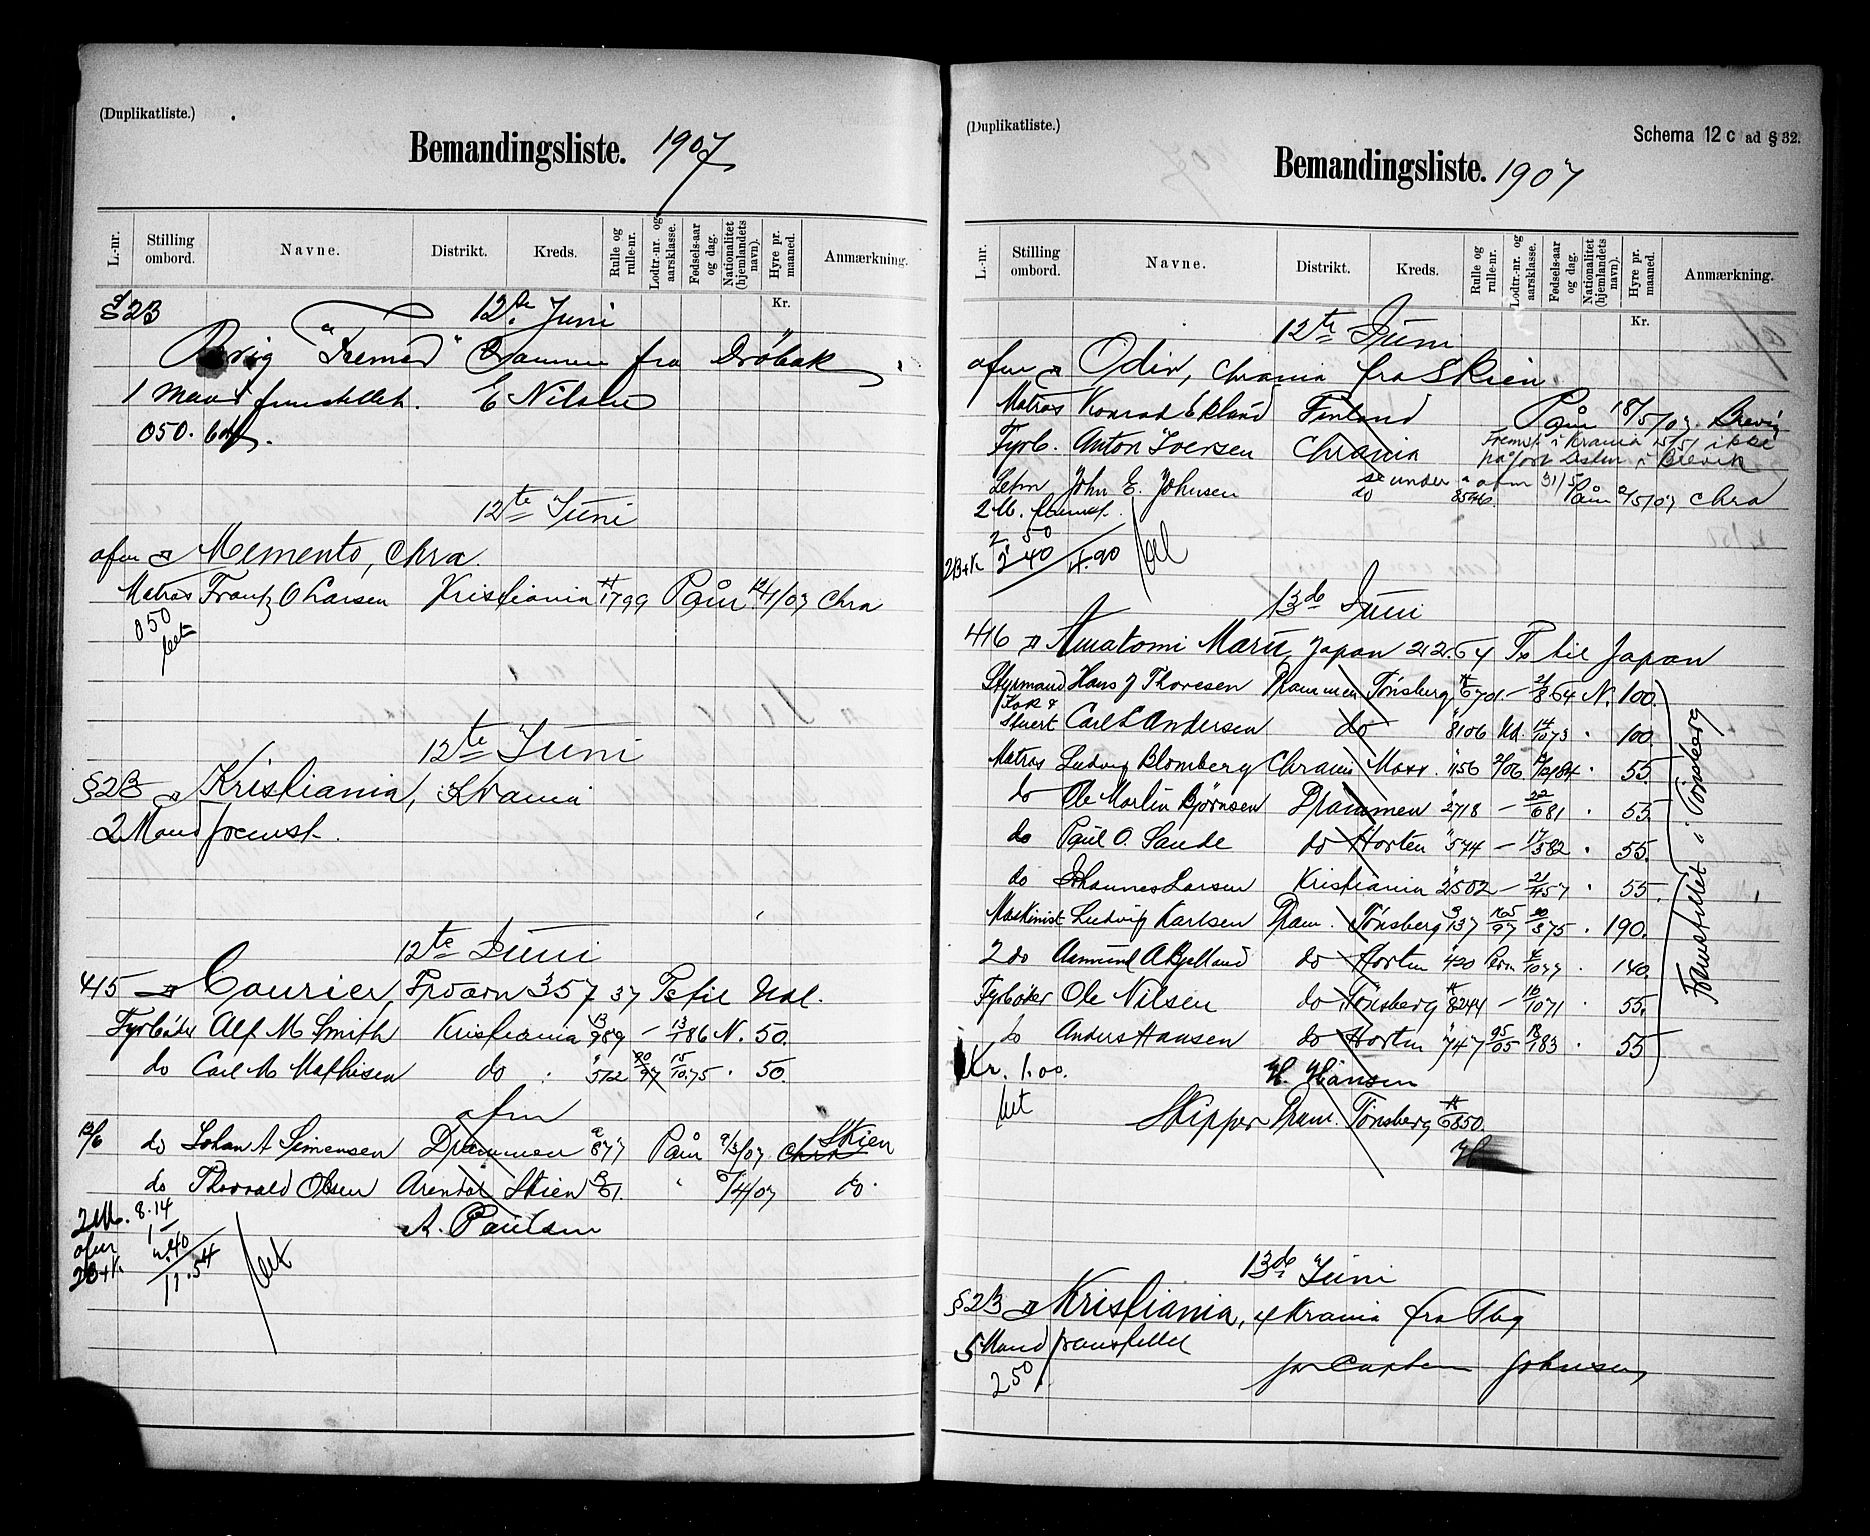 (Duplikatliste.)
Bemandingsliste. 1907
L.-nr. Stilling ombord. Navne. Distrikt. Kreds. Rulle og rulle-nr. Lodtr.-nr. og aarsklasse. Fødsels-aar og dag. Nationalitet (hjemlandets navn). Hyre pr. maaned. Anmærkning.
Kr.
§23 12te Juni
fra Drøbak
1 Mand fremstillet. E Nilsen
050. bet.
12te Juni
afm Memento, Chra.
Matros Frantz O Larsen Kristiania 1799 Paam 12/1/07 Chra
050
bet
12te Juni
§23 Kristiania, Krania
2 Mand fremst.
12te Juni
415 Courier, 357.37 Ts til Udl.
Fyrbøder Alf M Smith Kristiania 13/989 – 13/186 N. 50.
do Carl M Mathisen do " 512 90/97 15/1075 " 50.
afm
12/6 do Johan A Simensen Drammen 877 Paam 9/3/07 Chra Skien
do Thorvald Olsen Arendal Skien 61. " /4/07 do.
2 M. 8.14 A. Paulsen
afm 1–
2B+K 2.40
11.54 bet
(Duplikatliste.)
Schema 12 c ad § 32.
Bemandingsliste. 1907
L.-nr. Stilling ombord. Navne. Distrikt. Kreds. Rulle og rulle-nr. Lodtr.-nr. og aarsklasse. Fødsels-aar og dag. Nationalitet (hjemlandets navn). Hyre pr. maaned. Anmærkning.
Kr.
12te Juni
afm Odin, Chrania fra Skien
Matros Konrad Eklund Finland Paam 18/5/07 Brevig
Fyrb. Anton Iversen Chrania Fremst. i Krania 25/5, ikke
paaført Listen i Brevik
se under afm 31/5
Letm John E. Johnsen do 8546 Paam 2/5/07 Chra
2 M. fremst.
2.50
2B+K 2.40 4.90 bet
13de Juni
416 Amatomi Maru, Japan 212.64 Ts til Japan
Styrmand Hans J Thoresen Drammen Tønsberg 6701 – 21/8.64 N. 100.
Kok & Stuert Carl L Andersen do " 8106 Ud. 14/1073 " 100.
Matros Ludvig Blomberg Chrania Moss " 1156 2/06 /1284 " 55.
do Ole Martin Bjørnsen Drammen " 2718 – 22/681 " 55.
do Paul O. Sande do Horten " 574 – 17/582 " 55.
do Johannes Larsen Kristiania " 2502 – 21/457 " 55.
Maskinist Ludvig Karlsen Dram. Tønsberg 137 165/97 20/375 " 190.
2 do Asmund A Bjelland do Horten 420 /1077 " 140.
Fyrbøder Ole Nilsen do Tønsberg 8244 – 16/1071 " 55.
do Anders Hansen do Horten " 747 95/05 18/183 " 55
Fremstillet i Tønsberg
Kr. 1.00. H. Hansen
bet Skipper Dram. Tønsberg 6850.
13de Juni
§23 Kristiania, af Krania fra Tbg
5 Mand fremstillet
2.50 for Captein Johnsen